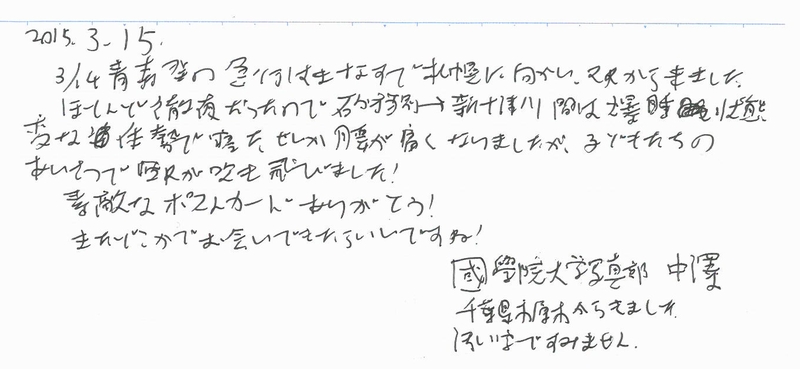 2015. 3. 15.
3/14 青森発の急行はまなすで札幌に向かい、来ました。
ほとんど徹夜だったので 石狩 → 新十津川 間は爆睡状態
変な体勢で寝たせいか腰が痛くなりましたが、子どもたちの
あいさつで眠気が吹き飛びました!
素敵なポストカードありがとう!
またどこかでお会いできたらいいですね!
國學院大学写真部 中澤
千葉県からきました。
汚い字ですみません。